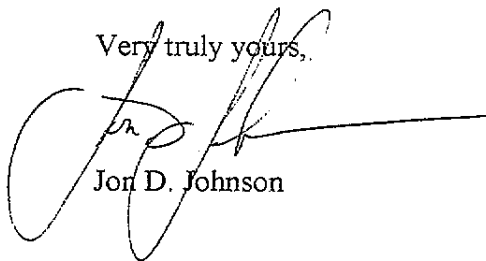 Very truly yours,
Jon D. Johnson